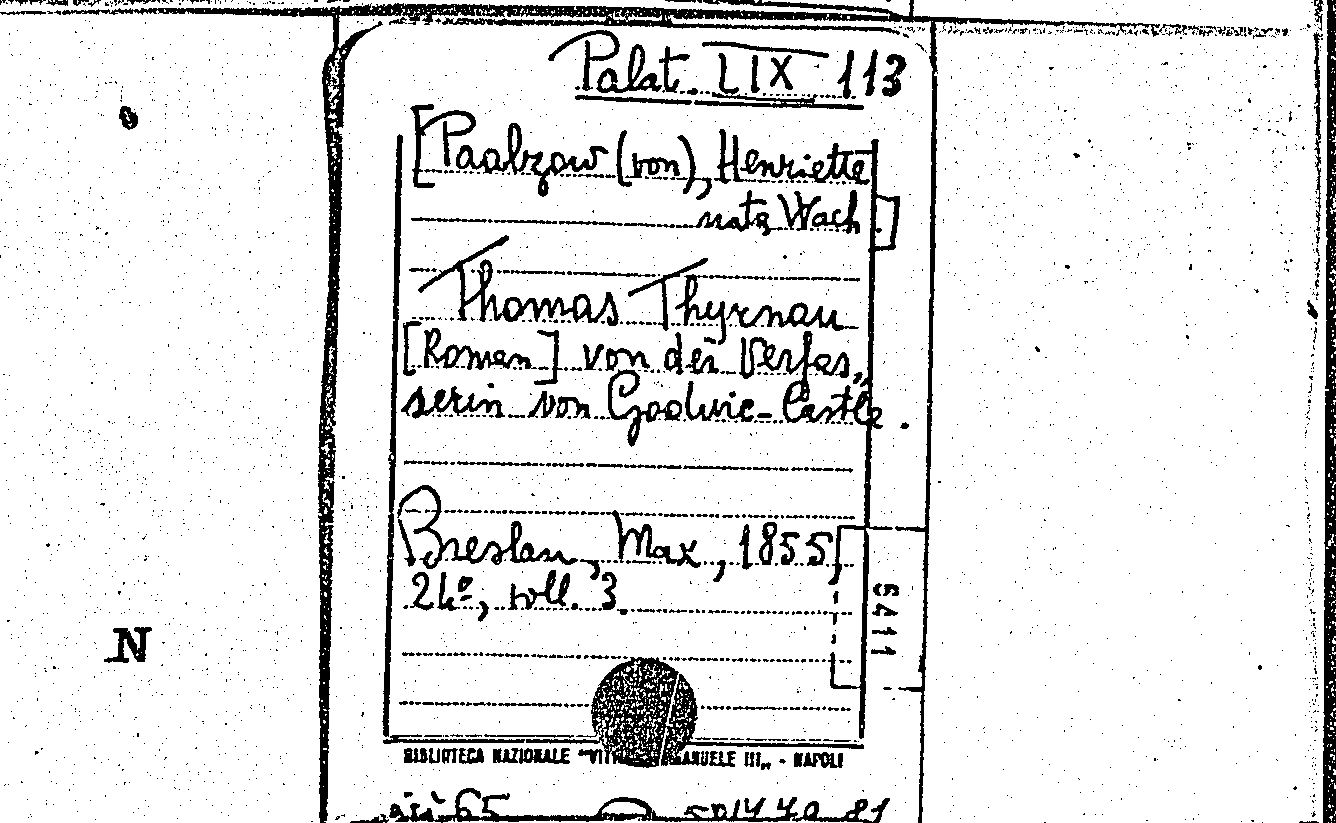 Palat. LIX 113
[Paalzow (von), Henriette
nata Wach.]
Thomas Thyrnau
[Roman] von der Verfas„
serin von Godwie-Castle.
Breslau, Max, 1855,
24º, voll. 3.
6411
N
BIBLIOTECA NAZIONALE "VITT ANUELE III„ - NAPOLI
già 65